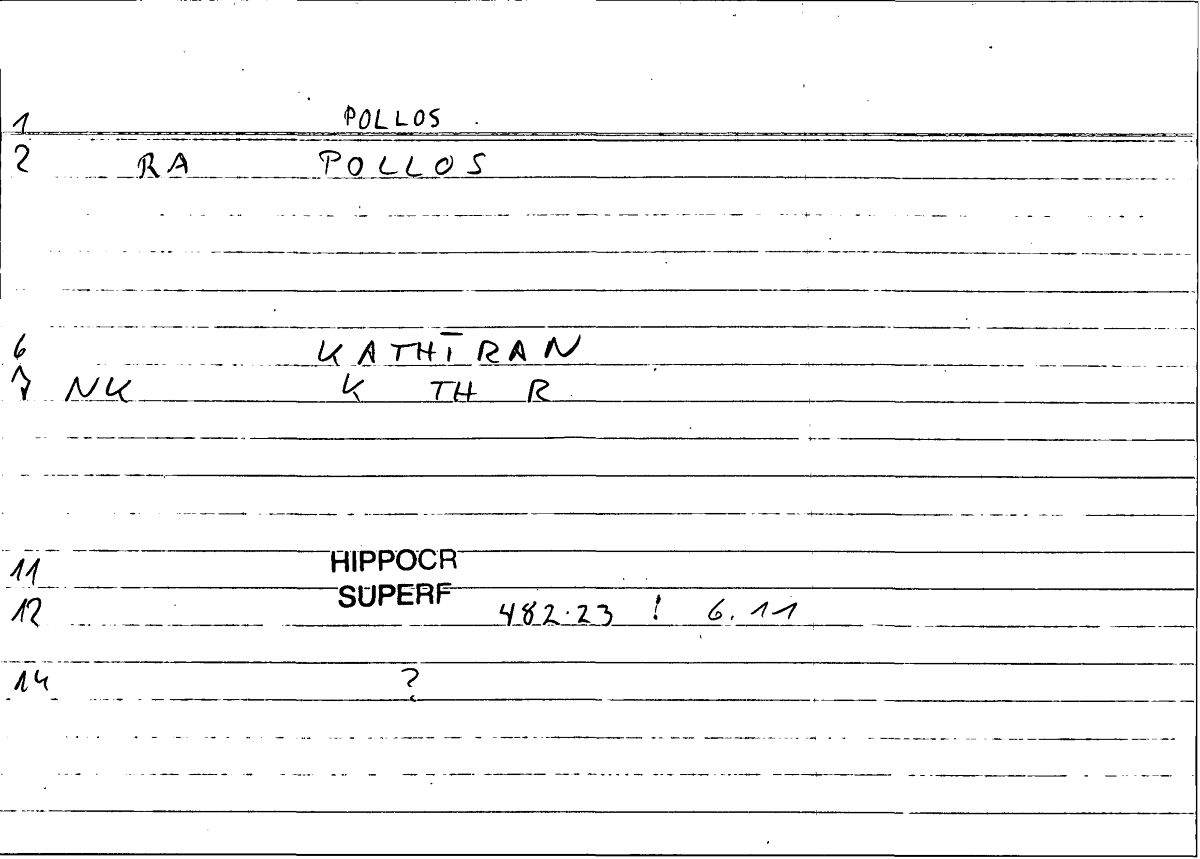 1 POLLOS
2 RA POLLOS
6 KATHĪRAN
7 NK K TH R
11 HIPPOCR
SUPERF
12 482.23 ! 6.11
14 ?